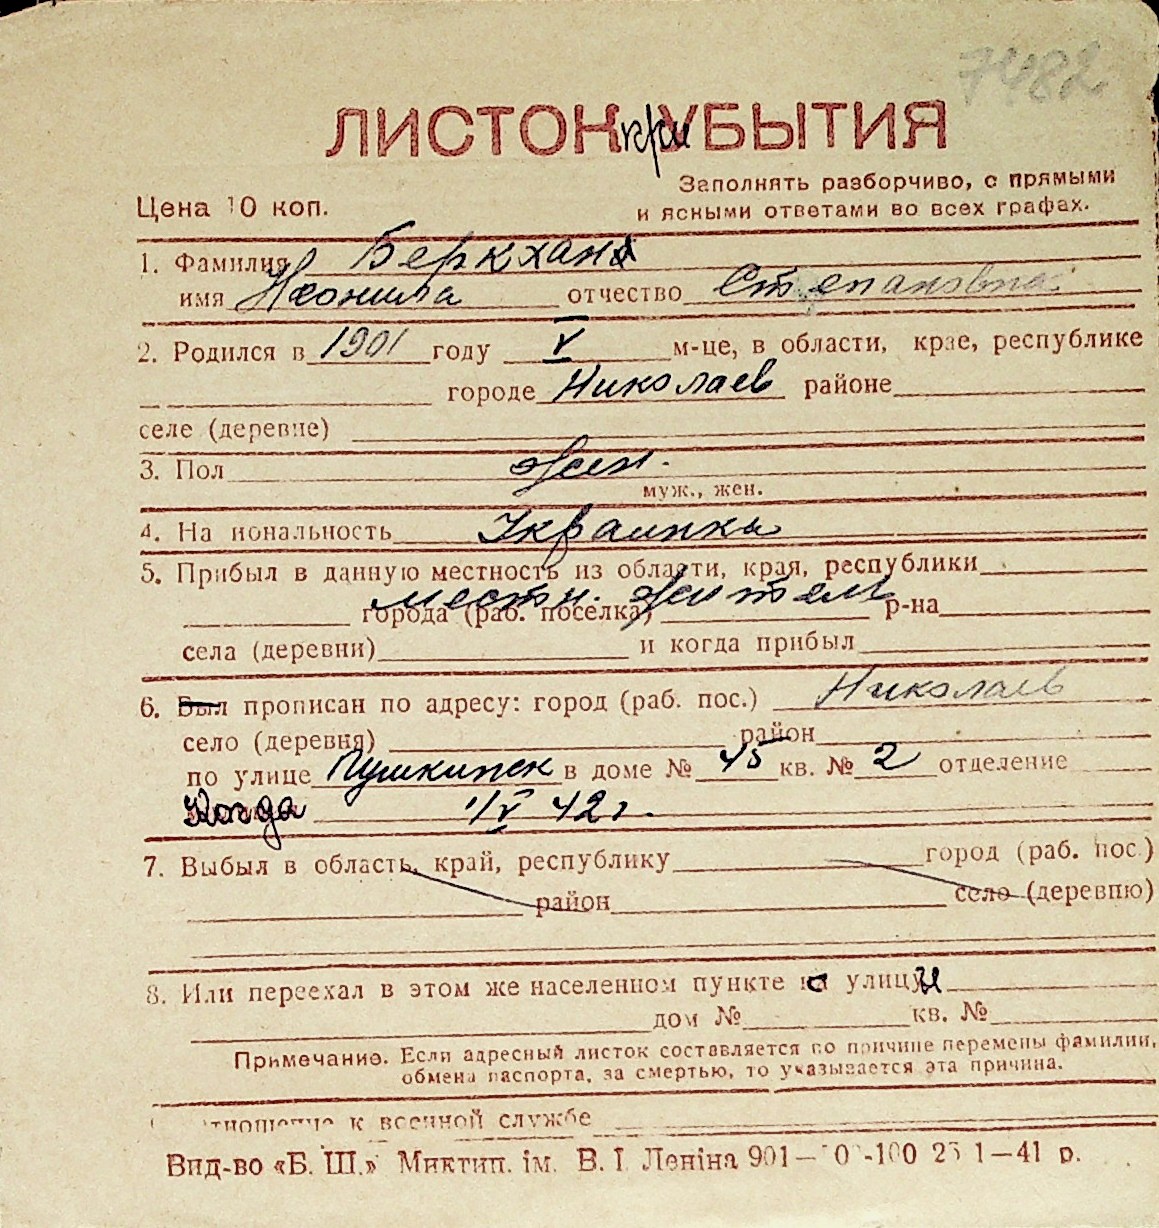 7482
ЛИСТОК при УБЫТИЯ
Заполнять разборчиво, с прямыми
Цена 10 коп.
и ясными ответами во всех графах.
1. Фамилия Беркхан
имя Неонила отчество Степановна
2. Родился в 1901 году V м-це, в области, крае, республике
городе Николаев районе
селе (деревне)
3. Пол жен.
муж., жен.
4. На иональность Украинка
5. Прибыл в данную местность из области, края, республики
местн. житель
города (раб. поселка) р-на
села (деревни) и когда прибыл
6. Был прописан по адресу: город (раб. пос.) Николаев
село (деревня) район
по улице Пушкинск в доме № 45 кв. № 2 отделение
Когда 1/V 42 г.
7. Выбыл в область, край, республику город (раб. пос.)
район село (деревню)
8. Или переехал в этом же населенном пункте с улицы
дом № кв. №
Примечание. Если адресный листок составляется по причине перемены фамилии,
обмена паспорта, за смертью, то указывается эта причина.
тношение к военной службе
Вид-во «Б. Ш.» Миктип. ім. В. І. Леніна 901— 0 -100 25 1—41 р.